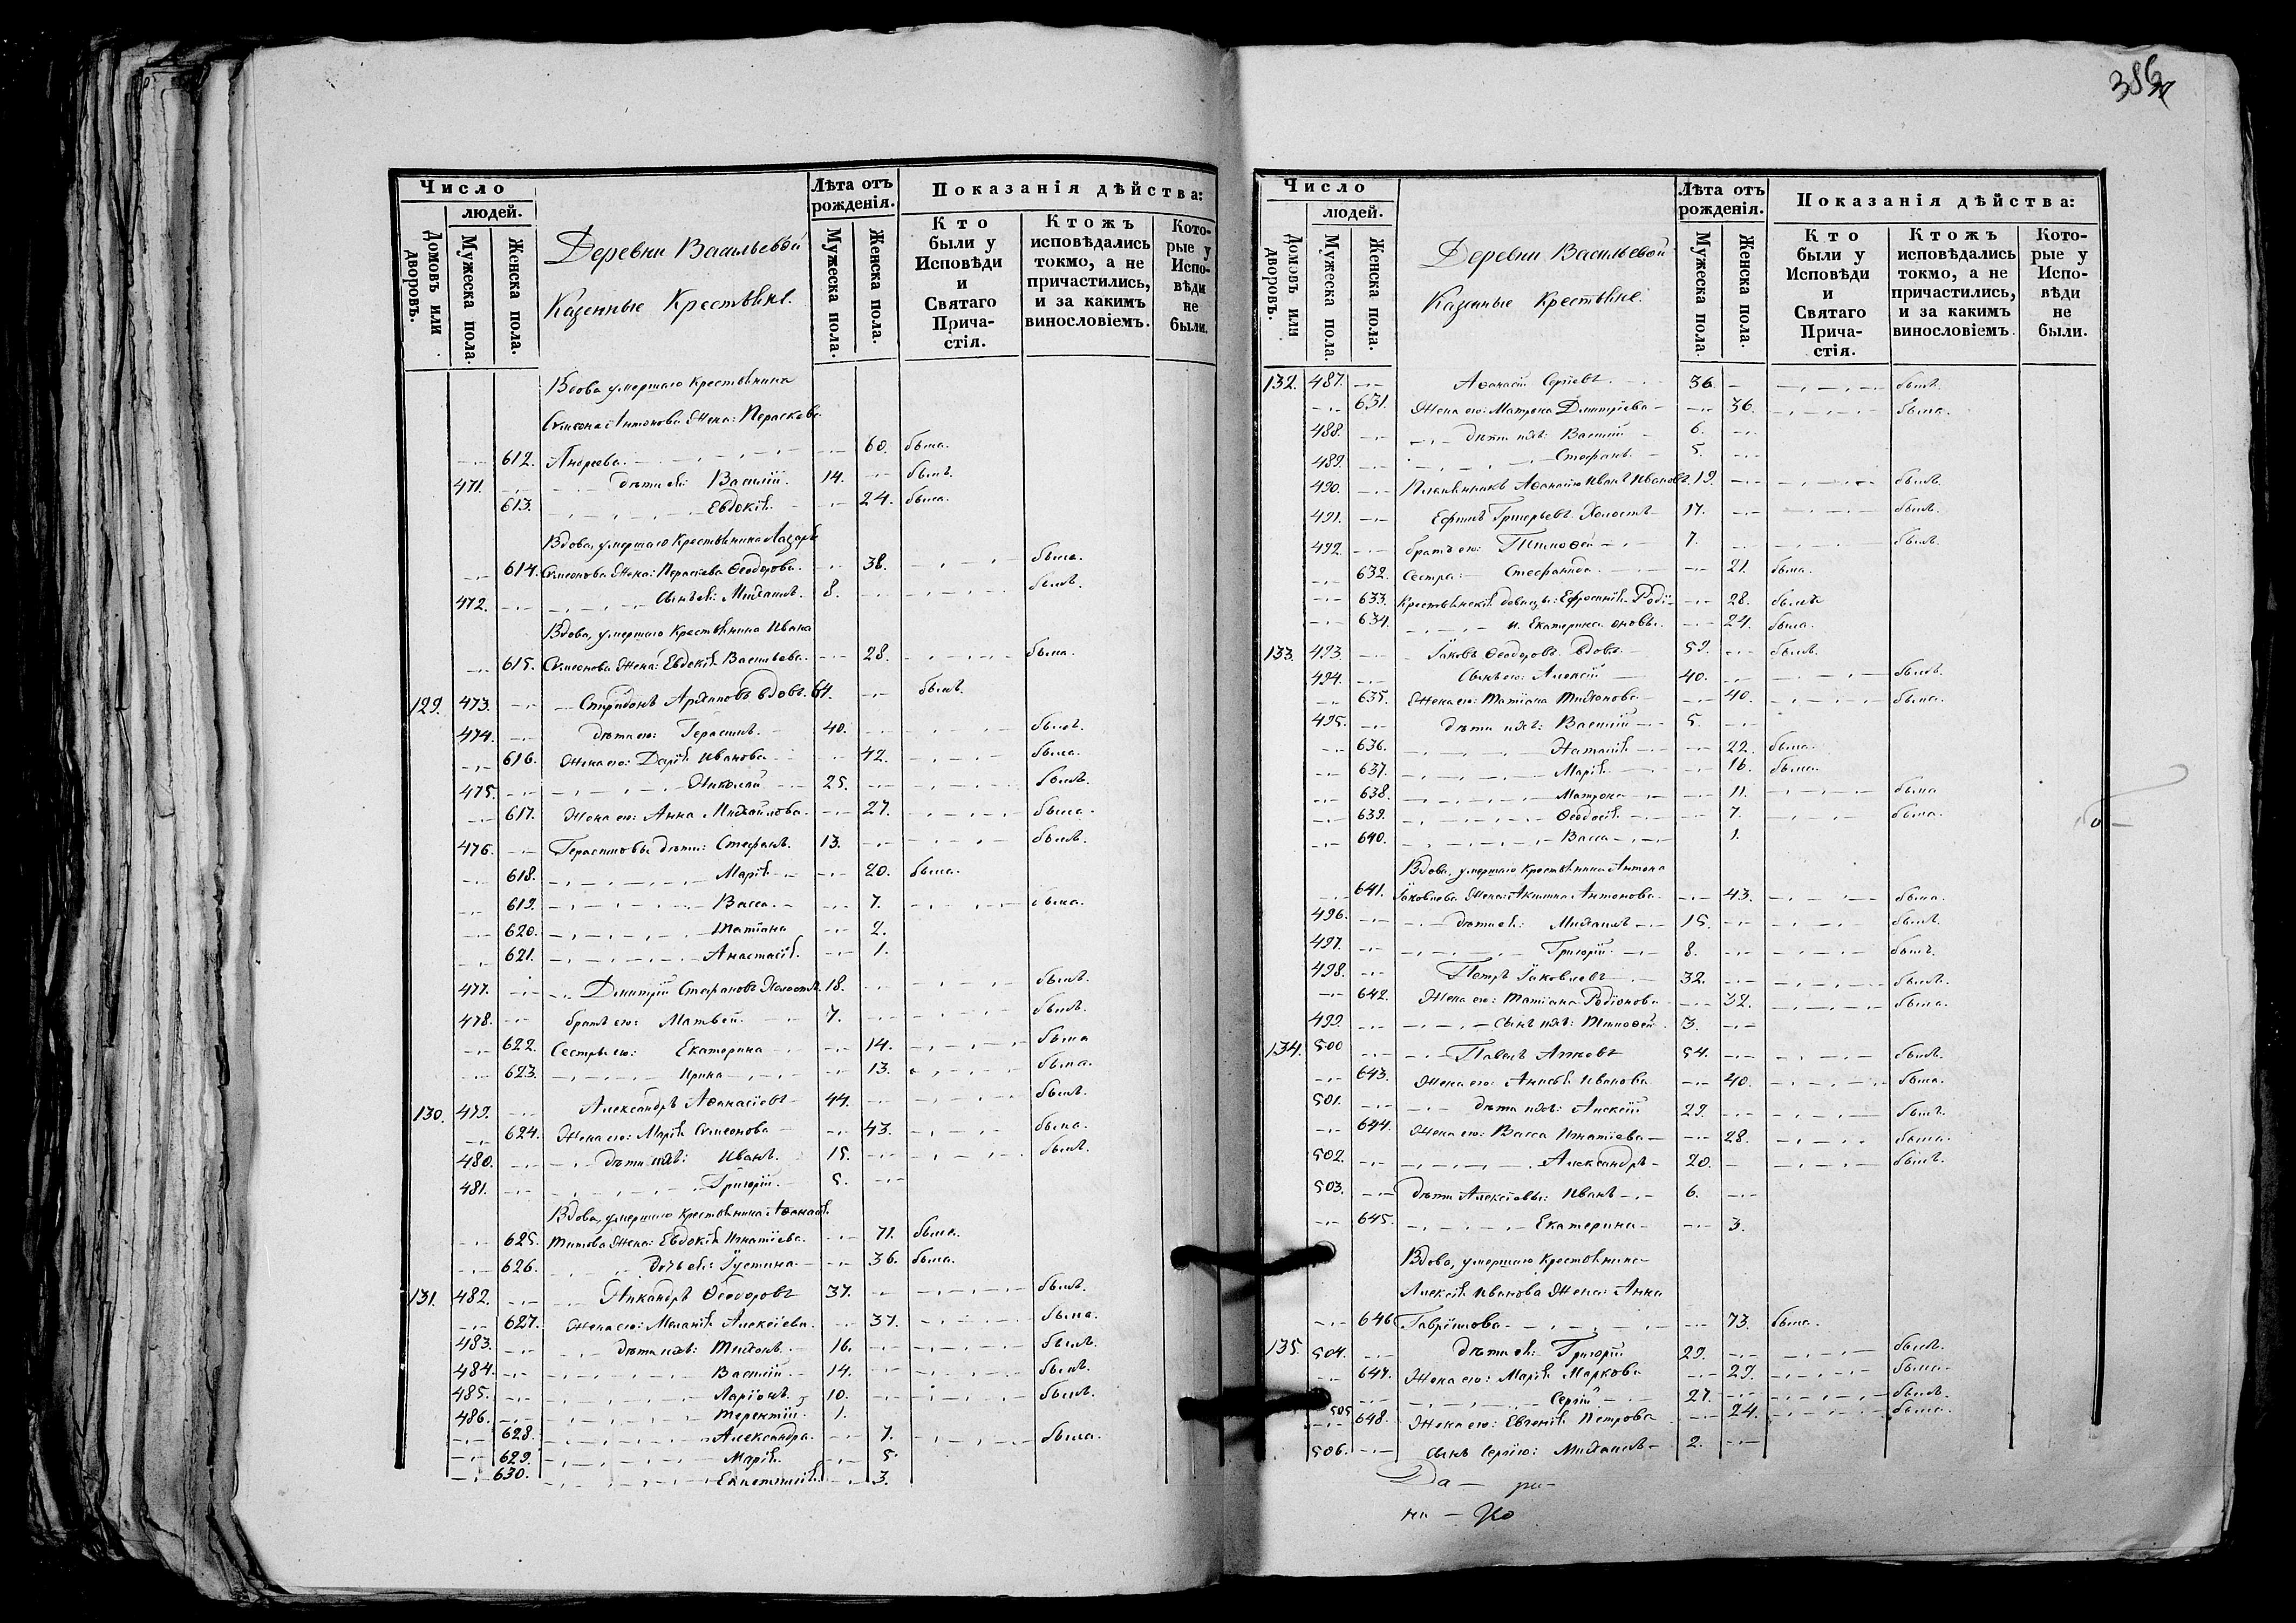 386
Число
людей.
Домовъ или дворовъ.
Мужеска пола.
Женска пола.
Деревни Васильевой
Казенные Крестьяне.
Лѣта отъ рожденія.
Мужеска пола.
Женска пола.
Показанія дѣйства:
Кто были у Исповѣди и Святаго Прича-стія.
Ктожъ исповѣдались токмо, а не причастились, и за какимъ винословіемъ.
Кото-рые у Испо-вѣди не были.
Вдова умершаго Крестьянина
Симеона Антонова Жена: Параскева
612. Андреева. 60. была.
471. дѣти ея: Василій. 14. былъ.
613. Евдокія. 24. была.
Вдова, умершаго Крестьянина Лазаря
614. Симеонова Жена: Параскева Ѳеодорова. 38. была.
472. Сынъ ея: Михаилъ. 8. былъ.
Вдова, умершаго Крестьянина Ивана
615. Симеонова Жена: Евдокія Васильева. 28. была.
129. 473. Спиридонъ Архиповъ вдовъ. 64. былъ.
474. дѣти его: Герасимъ. 40. былъ.
616. Жена его: Дарія Иванова 42. была.
475. Николай 25. былъ.
617. Жена его: Анна Михайлова. 27. была.
476. Герасимовы дѣти: Стефанъ. 13. былъ.
618. Марія 20. была.
619. Васса. 7. была.
620. Татіана 2.
621. Анастасія. 1.
477. Димитрій Стефановъ Холостъ. 18. былъ.
478. братъ его: Матвей. 7. былъ.
622. Сестры его: Екатерина 14. была
623. Ирина 13. была.
130. 479. Александръ Аѳанасіевъ 44. былъ.
624. Жена его: Марія Симеонова 43. была.
480. дѣти ихъ: Иванъ. 15. былъ.
481. Григорій. 5.
Вдова, умершаго Крестьянина Аѳанасія
625. Титова Жена: Евдокія Игнатіева. 71. была.
626. дочь ея: Іустина. 36. была.
131. 482. Никандръ Ѳеодоровъ 37. былъ.
627. Жена его: Меланія Алексіева. 37. была.
483. дѣти ихъ: Тихонъ. 16. былъ.
484. Василій. 14. былъ.
485. Ларіонъ. 10. былъ.
486. Терентій. 1.
628. Александра. 7. была.
629. Марія. 5.
630. 3.
Число
людей.
Домовъ или дворовъ.
Мужеска пола.
Женска пола.
Деревни Васильевой
Казенные Крестьяне.
Лѣта отъ рожденія.
Мужеска пола.
Женска пола.
Показанія дѣйства:
Кто были у Исповѣди и Святаго Прича-стія.
Ктожъ исповѣдались токмо, а не причастились, и за какимъ винословіемъ.
Кото-рые у Испо-вѣди не были.
132. 487. Аѳанасій Сергіевъ 36. былъ.
631. Жена его: Матрона Димитріева 36. была.
488. дѣти ихъ: Василій 6.
489. Стефанъ 5.
490. Племянникъ Аѳанасію Иванъ Ивановъ 19. былъ.
491. Ефимъ Григорьевъ Холостъ 17. былъ.
492. братъ его: Тимоѳей 7. былъ.
632. Сестра: Стефанида 21. была.
633. Крестьянскія девицы: Ефросинія Роді- 28. была
634. и Екатерина оновы. 24. была.
133. 493. Іаковъ Ѳеодоровъ вдовъ. 59. былъ.
494. Сынъ его: Алексій 40. былъ.
635. Жена его: Татіана Тихонова 40. была.
495. дѣти ихъ: Василій 5.
636. Наталія 22. была.
637. Марія 16. была.
638. Матрона 11. была
639. Ѳеодосія 7. была.
640. Васса 1.
Вдова, умершаго Крестьянина Антона
641. Іаковлева Жена: Акилина Антонова. 43. была.
496. дѣти ея: Михаилъ 15. былъ.
497. Григорій 8. былъ.
498. Петръ Іаковлевъ 32. былъ.
642. Жена его: Татіана Родіонова 32. была.
499. Сынъ ихъ: Тимоѳей 3.
134. 500 54. былъ.
643. Жена его: Анисія Иванова 40. была.
501. дѣти ихъ: Алексій 29. былъ.
644. Жена его: Васса Игнатіева 28. была.
502. Александръ 20. былъ.
503. дѣти Алексіевы: Иванъ 6.
645. Екатерина 3.
Вдова, умершаго Крестьянина
Алексія Иванова Жена: Анна
646 Гавріилова. 73. была.
135. 504. дѣти ея: Григорій 29. былъ.
647. Жена его: Марія Маркова 29. была.
505 Сергій 27. былъ.
648. Жена его: Евгенія Петрова 24. была.
506. Сынъ Сергію: Михаилъ 2.